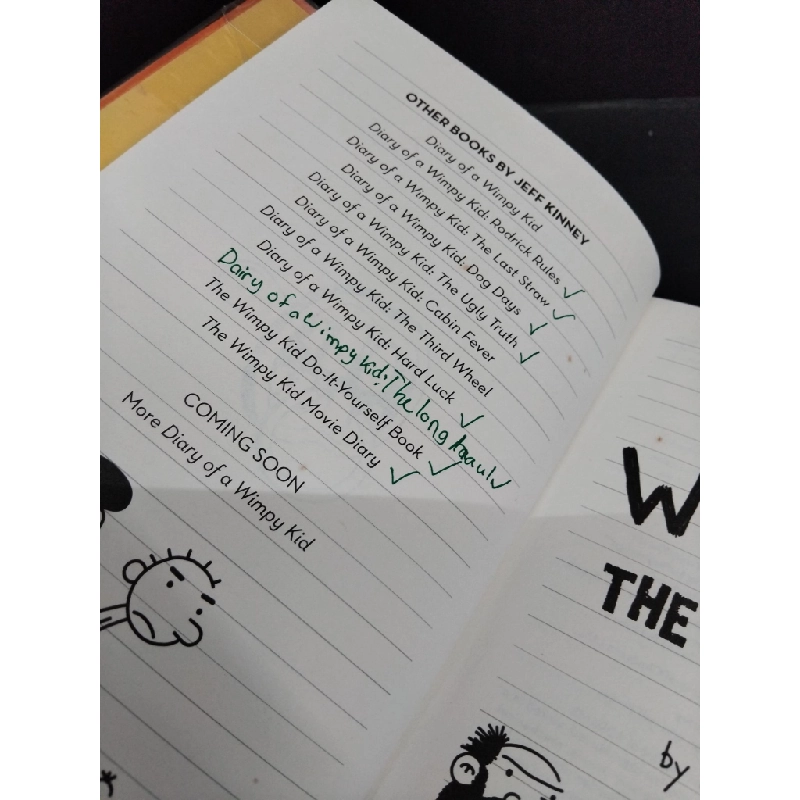 OTHER BOOKS BY JEFF KINNEY
Diary of a Wimpy Kid
Diary of a Wimpy Kid: Rodrick Rules
Diary of a Wimpy Kid: The Last Straw
Diary of a Wimpy Kid: Dog Days
Diary of a Wimpy Kid: The Ugly Truth
Diary of a Wimpy Kid: Cabin Fever
Diary of a Wimpy Kid: The Third Wheel
Diary of a Wimpy Kid: Hard Luck
Dairy of a wimpy kid: The long haul
The Wimpy Kid Do-It-Yourself Book
The Wimpy Kid Movie Diary
COMING SOON
More Diary of a Wimpy Kid
W
THE
by